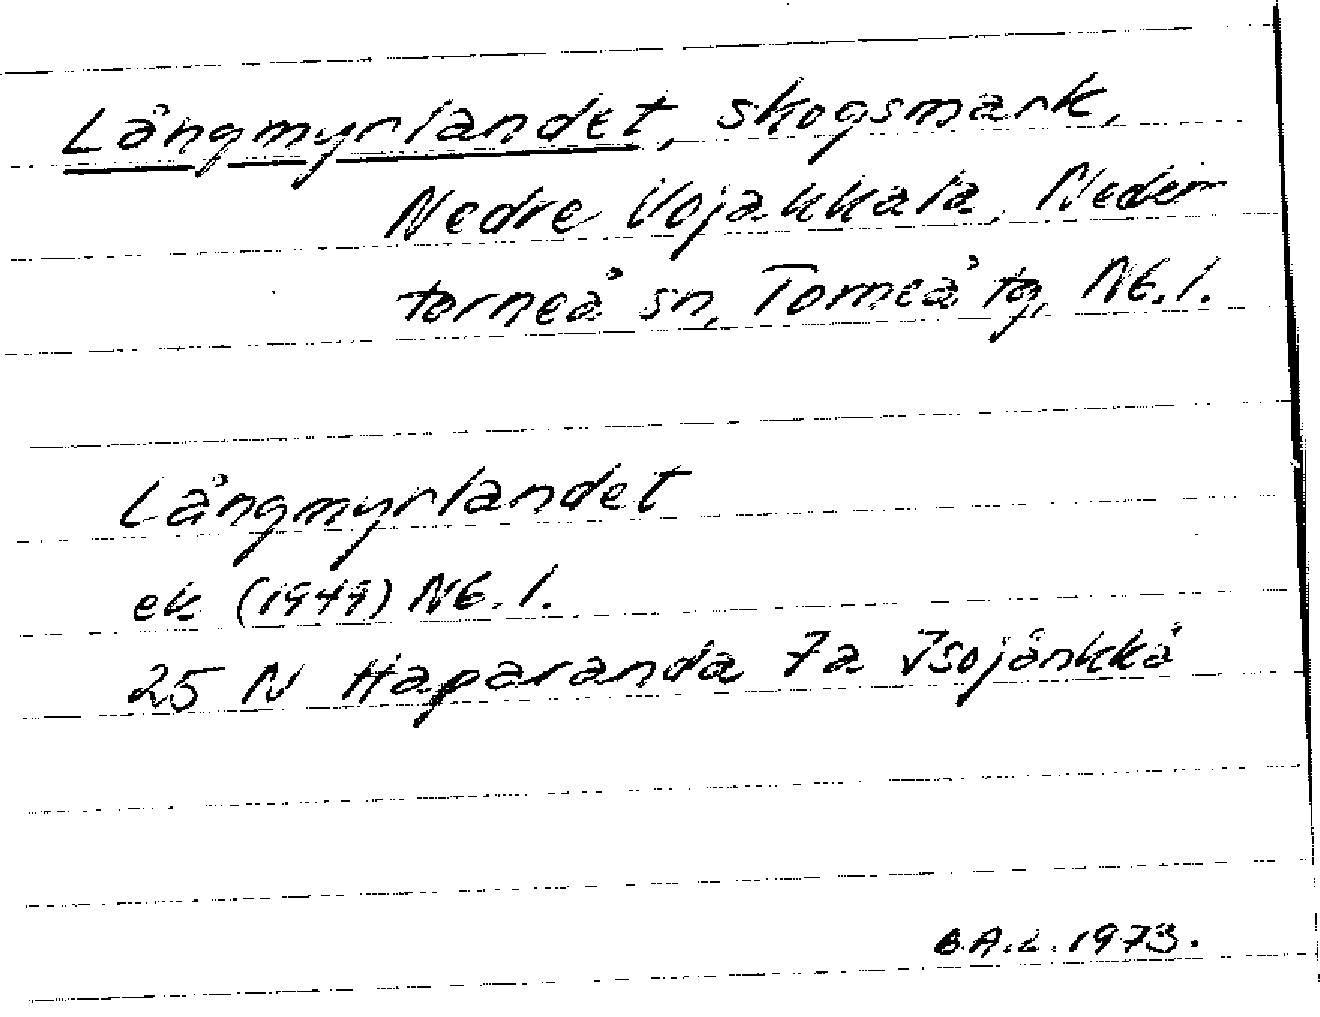 Långmyrlandet, skogsmark,
Nedre Vojakkala, Neder
torneå sn, Torneå tg, Nb. l.
Långmyrlandet
ek (1949) Nb. l.
25 N Haparanda 7a Isojänkkä
B.A.L. 1973.